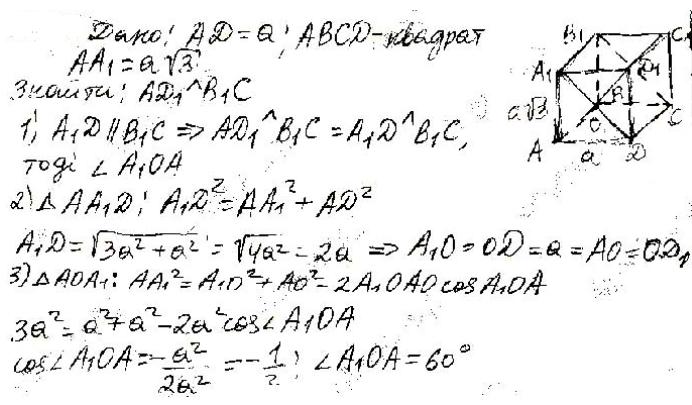 Дано: AD = a; ABCD - квадрат
AA₁ = a√3
Знайти: AD₁^B₁C
1) A₁D || B₁C ⇒ AD₁^B₁C = A₁D^B₁C,
тоді ∠A₁OA
2) △AA₁D: A₁D² = AA₁² + AD²
A₁D = √3a² + a² = √4a² = 2a ⇒ A₁O = OD = a = AO = OD₁
3) △AOA₁: AA₁² = A₁O² + AO² - 2A₁OAO cos A₁OA
3a² = a² + a² - 2a² cos∠A₁OA
cos∠A₁OA = -a²/2a² = -1/2; ∠A₁OA = 60°
B₁
C₁
A₁
D₁
B
a√3
O
C
A
a
D